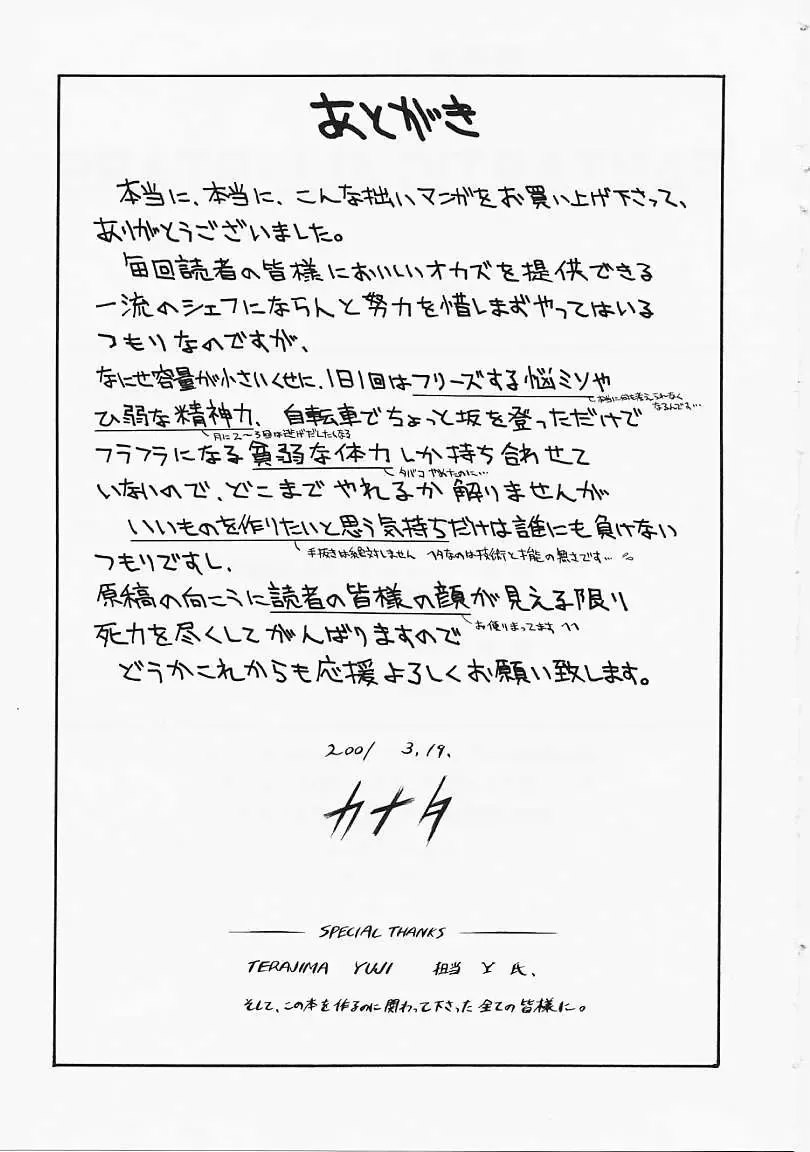 あとがき
本当に、本当に、こんな拙いマンガをお買い上げ下さって、
ありがとうございました。
毎回読者の皆様においしいオカズを提供できる
一流のシェフにならんと努力を惜しまずやってはいる
つもりなのですが、
なにせ容量が小さいくせに、1日1回はフリーズする脳ミソや
本当に何も考えられなく
なるんです…
ひ弱な精神力、自転車でちょっと坂を登っただけで
月に2〜3回は逃げだしたくなる
フラフラになる貧弱な体力しか持ち合わせて
タバコやめたのに…
いないので、どこまでやれるか解りませんが
いいものを作りたいと思う気持ちだけは誰にも負けない
手抜きは絶対しません ヘタなのは技術と才能の無さです…
つもりですし、
原稿の向こうに読者の皆様の顔が見える限り
お便りまってます ^^
死力を尽くしてがんばりますので
どうかこれからも応援よろしくお願い致します。
2001 3.19.
カナタ
SPECIAL THANKS
TERAJIMA YUJI 担当 Y 氏、
そして、この本を作るのに関わって下さった全ての皆様に。